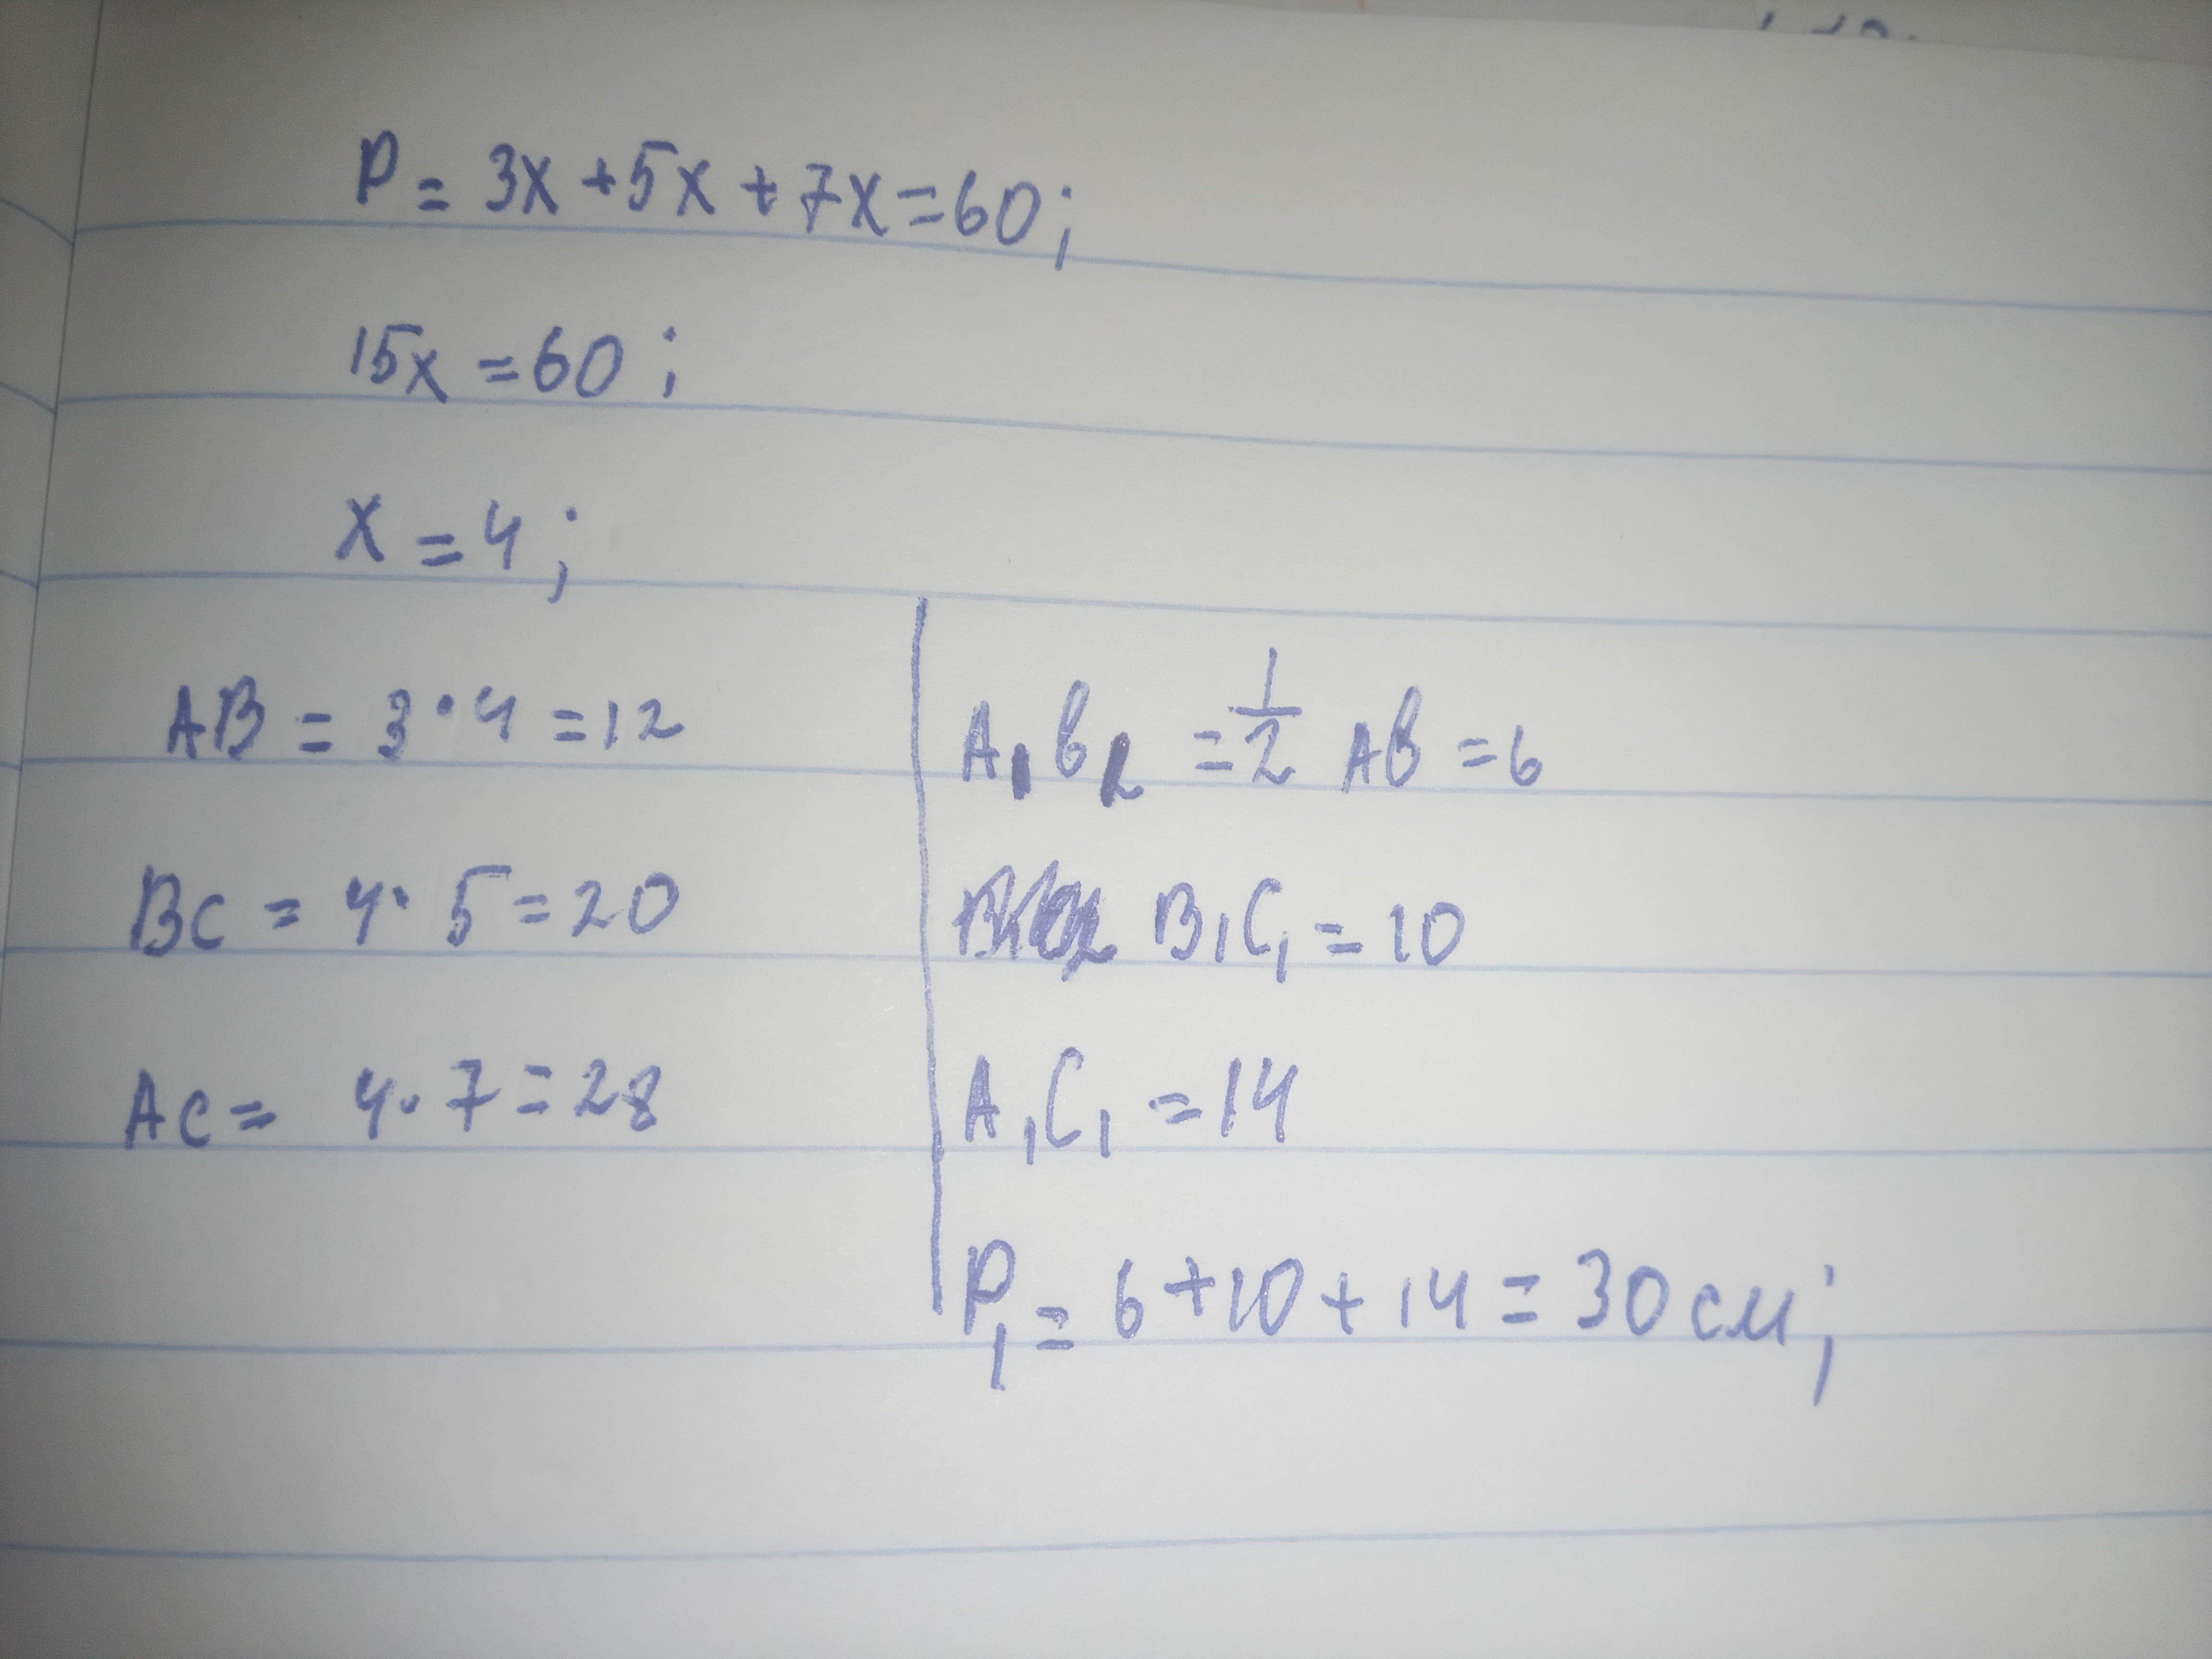 P = 3x + 5x + 7x = 60;
15x = 60;
x = 4;
AB = 3 · 4 = 12
BC = 4 · 5 = 20
AC = 4 · 7 = 28
A₁B₂ = 1/2 AB = 6
B₁C₁ = 10
A₁C₁ = 14
P₁ = 6 + 10 + 14 = 30 см;